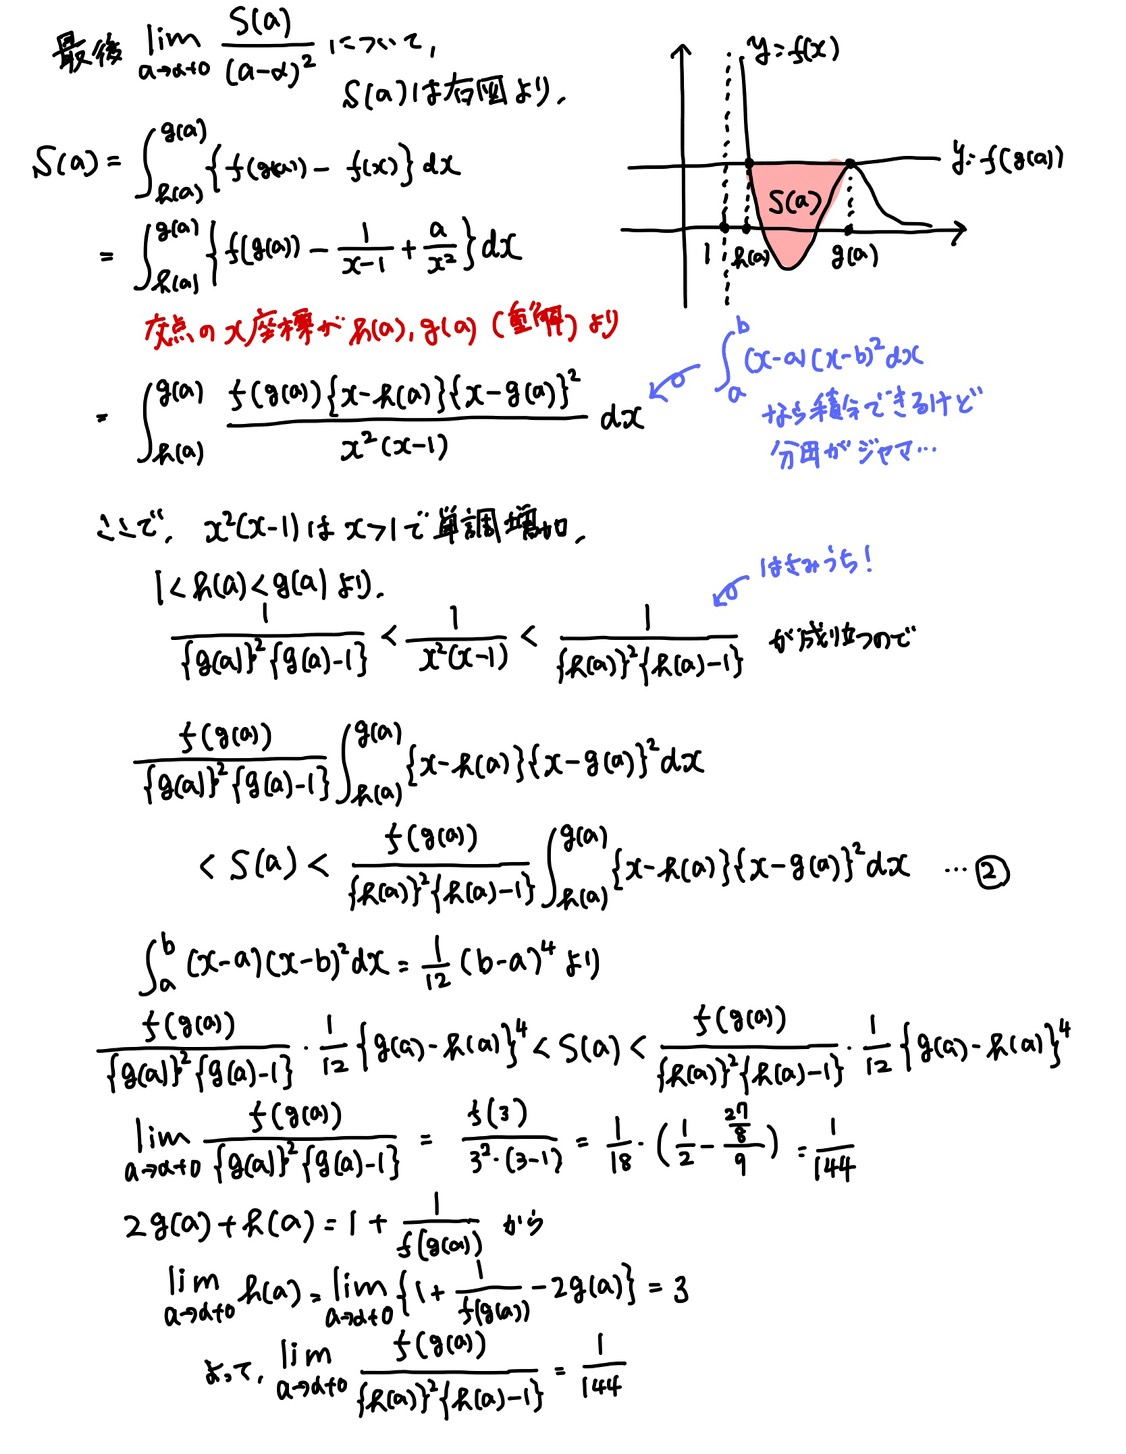 最後 lim_{a→α+0} S(a)/(a-α)² について,
S(a)は右図より,
y=f(x)
y=f(g(a))
S(a)
1 h(a) g(a)
S(a) = ∫_{h(a)}^{g(a)} {f(g(a)) - f(x)} dx
= ∫_{h(a)}^{g(a)} {f(g(a)) - 1/(x-1) + a/x²} dx
交点のx座標がh(a), g(a) (重解) より
= ∫_{h(a)}^{g(a)} f(g(a)){x-h(a)}{x-g(a)}²/(x²(x-1)) dx
∫_a^b (x-a)(x-b)² dx
なら積分できるけど
分母がジャマ…
ここで, x²(x-1)はx>1で単調増加,
1<h(a)<g(a) より,
はさみうち!
1/({g(a)}²{g(a)-1}) < 1/(x²(x-1)) < 1/({h(a)}²{h(a)-1}) が成り立つので
f(g(a))/({g(a)}²{g(a)-1}) ∫_{h(a)}^{g(a)} {x-h(a)}{x-g(a)}² dx
< S(a) < f(g(a))/({h(a)}²{h(a)-1}) ∫_{h(a)}^{g(a)} {x-h(a)}{x-g(a)}² dx …②
∫_a^b (x-a)(x-b)² dx = 1/12 (b-a)⁴ より
f(g(a))/({g(a)}²{g(a)-1}) · 1/12 {g(a)-h(a)}⁴ < S(a) < f(g(a))/({h(a)}²{h(a)-1}) · 1/12 {g(a)-h(a)}⁴
lim_{a→α+0} f(g(a))/({g(a)}²{g(a)-1}) = f(3)/(3²·(3-1)) = 1/18 · (1/2 - (27/8)/9) = 1/144
2g(a)+h(a) = 1 + 1/f(g(a)) から
lim_{a→α+0} h(a) = lim_{a→α+0} {1 + 1/f(g(a)) - 2g(a)} = 3
よって, lim_{a→α+0} f(g(a))/({h(a)}²{h(a)-1}) = 1/144